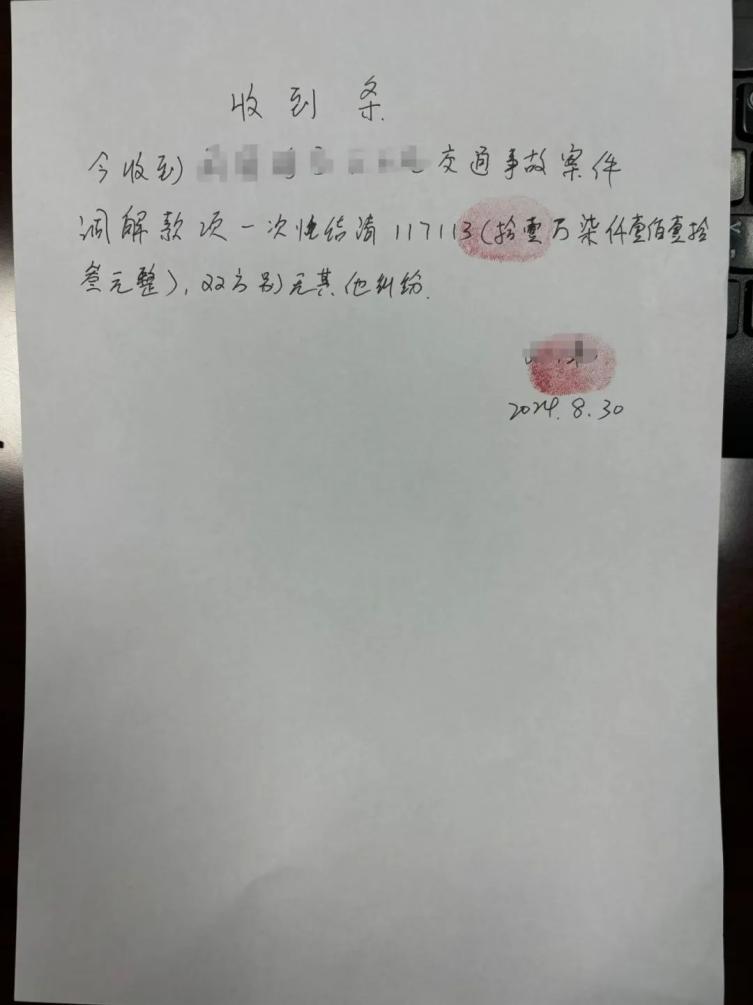 收到条
今收到 交通事故案件
调解款项一次性结清117113(拾壹万柒仟壹佰壹拾
叁元整),双方别无其他纠纷.
2024.8.30